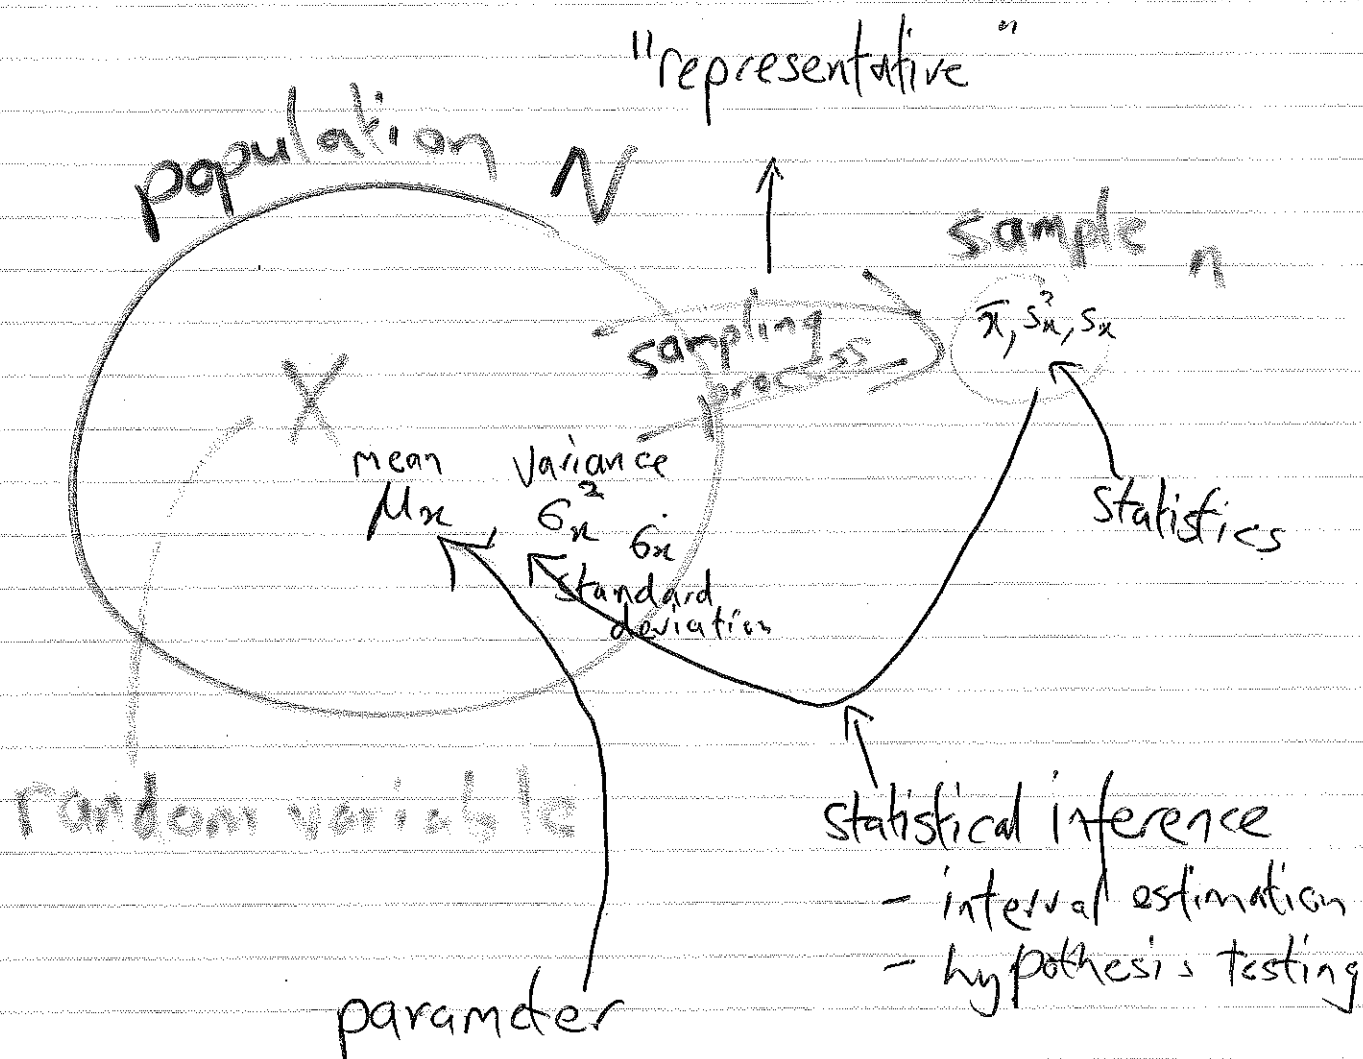 "representative"
population N
sample n
x̄, s²x, sx
sampling
process
X
mean variance
μx, σ²x σx
standard
deviation
statistics
random variable
statistical inference
- interval estimation
- hypothesis testing
parameter